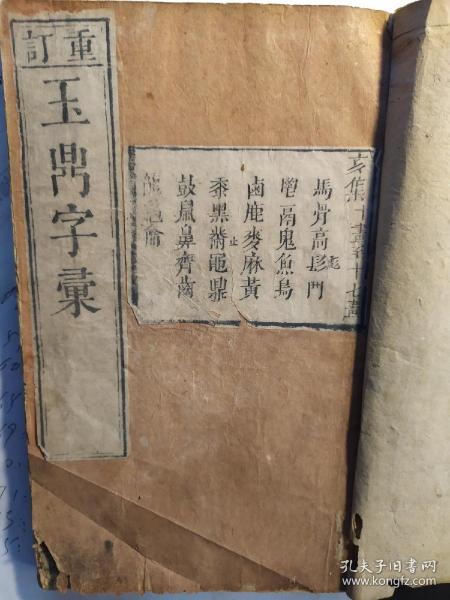 重訂
玉鼎字彙
亥集十畫至十七畫
馬骨高髟鬥
鬯鬲鬼魚鳥
鹵鹿麥麻黃
止
黍黑黹黽鼎
鼓鼠鼻齊齒
龍龜龠
孔夫子旧书网
www.kongfz.com